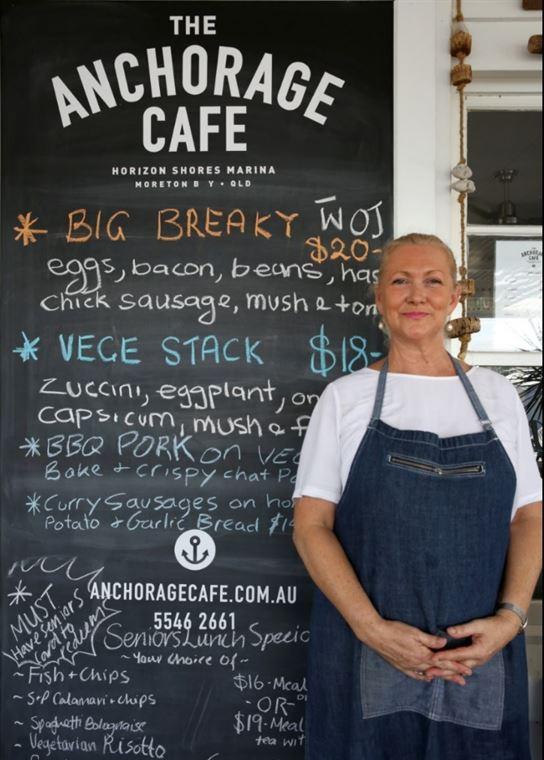 THE
ANCHORAGE
CAFE
HORIZON SHORES MARINA
MORETON B Y • QLD
* BIG BREAKY WOJ
$20-
eggs, bacon, beans, has
chick sausage, mush & tom
* VEGE STACK $18-
Zuccini, eggplant, on
capsicum, mush &
* BBQ PORK on VEG
Bake + crispy chat Po
* Curry Sausages on
Potato & Garlic Bread $1
ANCHORAGECAFE.COM.AU
5546 2661
* MUST
Have seniors
card to
redeem
Seniors Lunch Specia
~ Your choice of ~
~ Fish + Chips
~ S+P Calamari + chips
~ Spaghetti Bolognaise
~ Vegetarian Risotto
$16- Meal
- OR -
$19- Meal
tea wit
THE
ANCHORAGE
CAFE